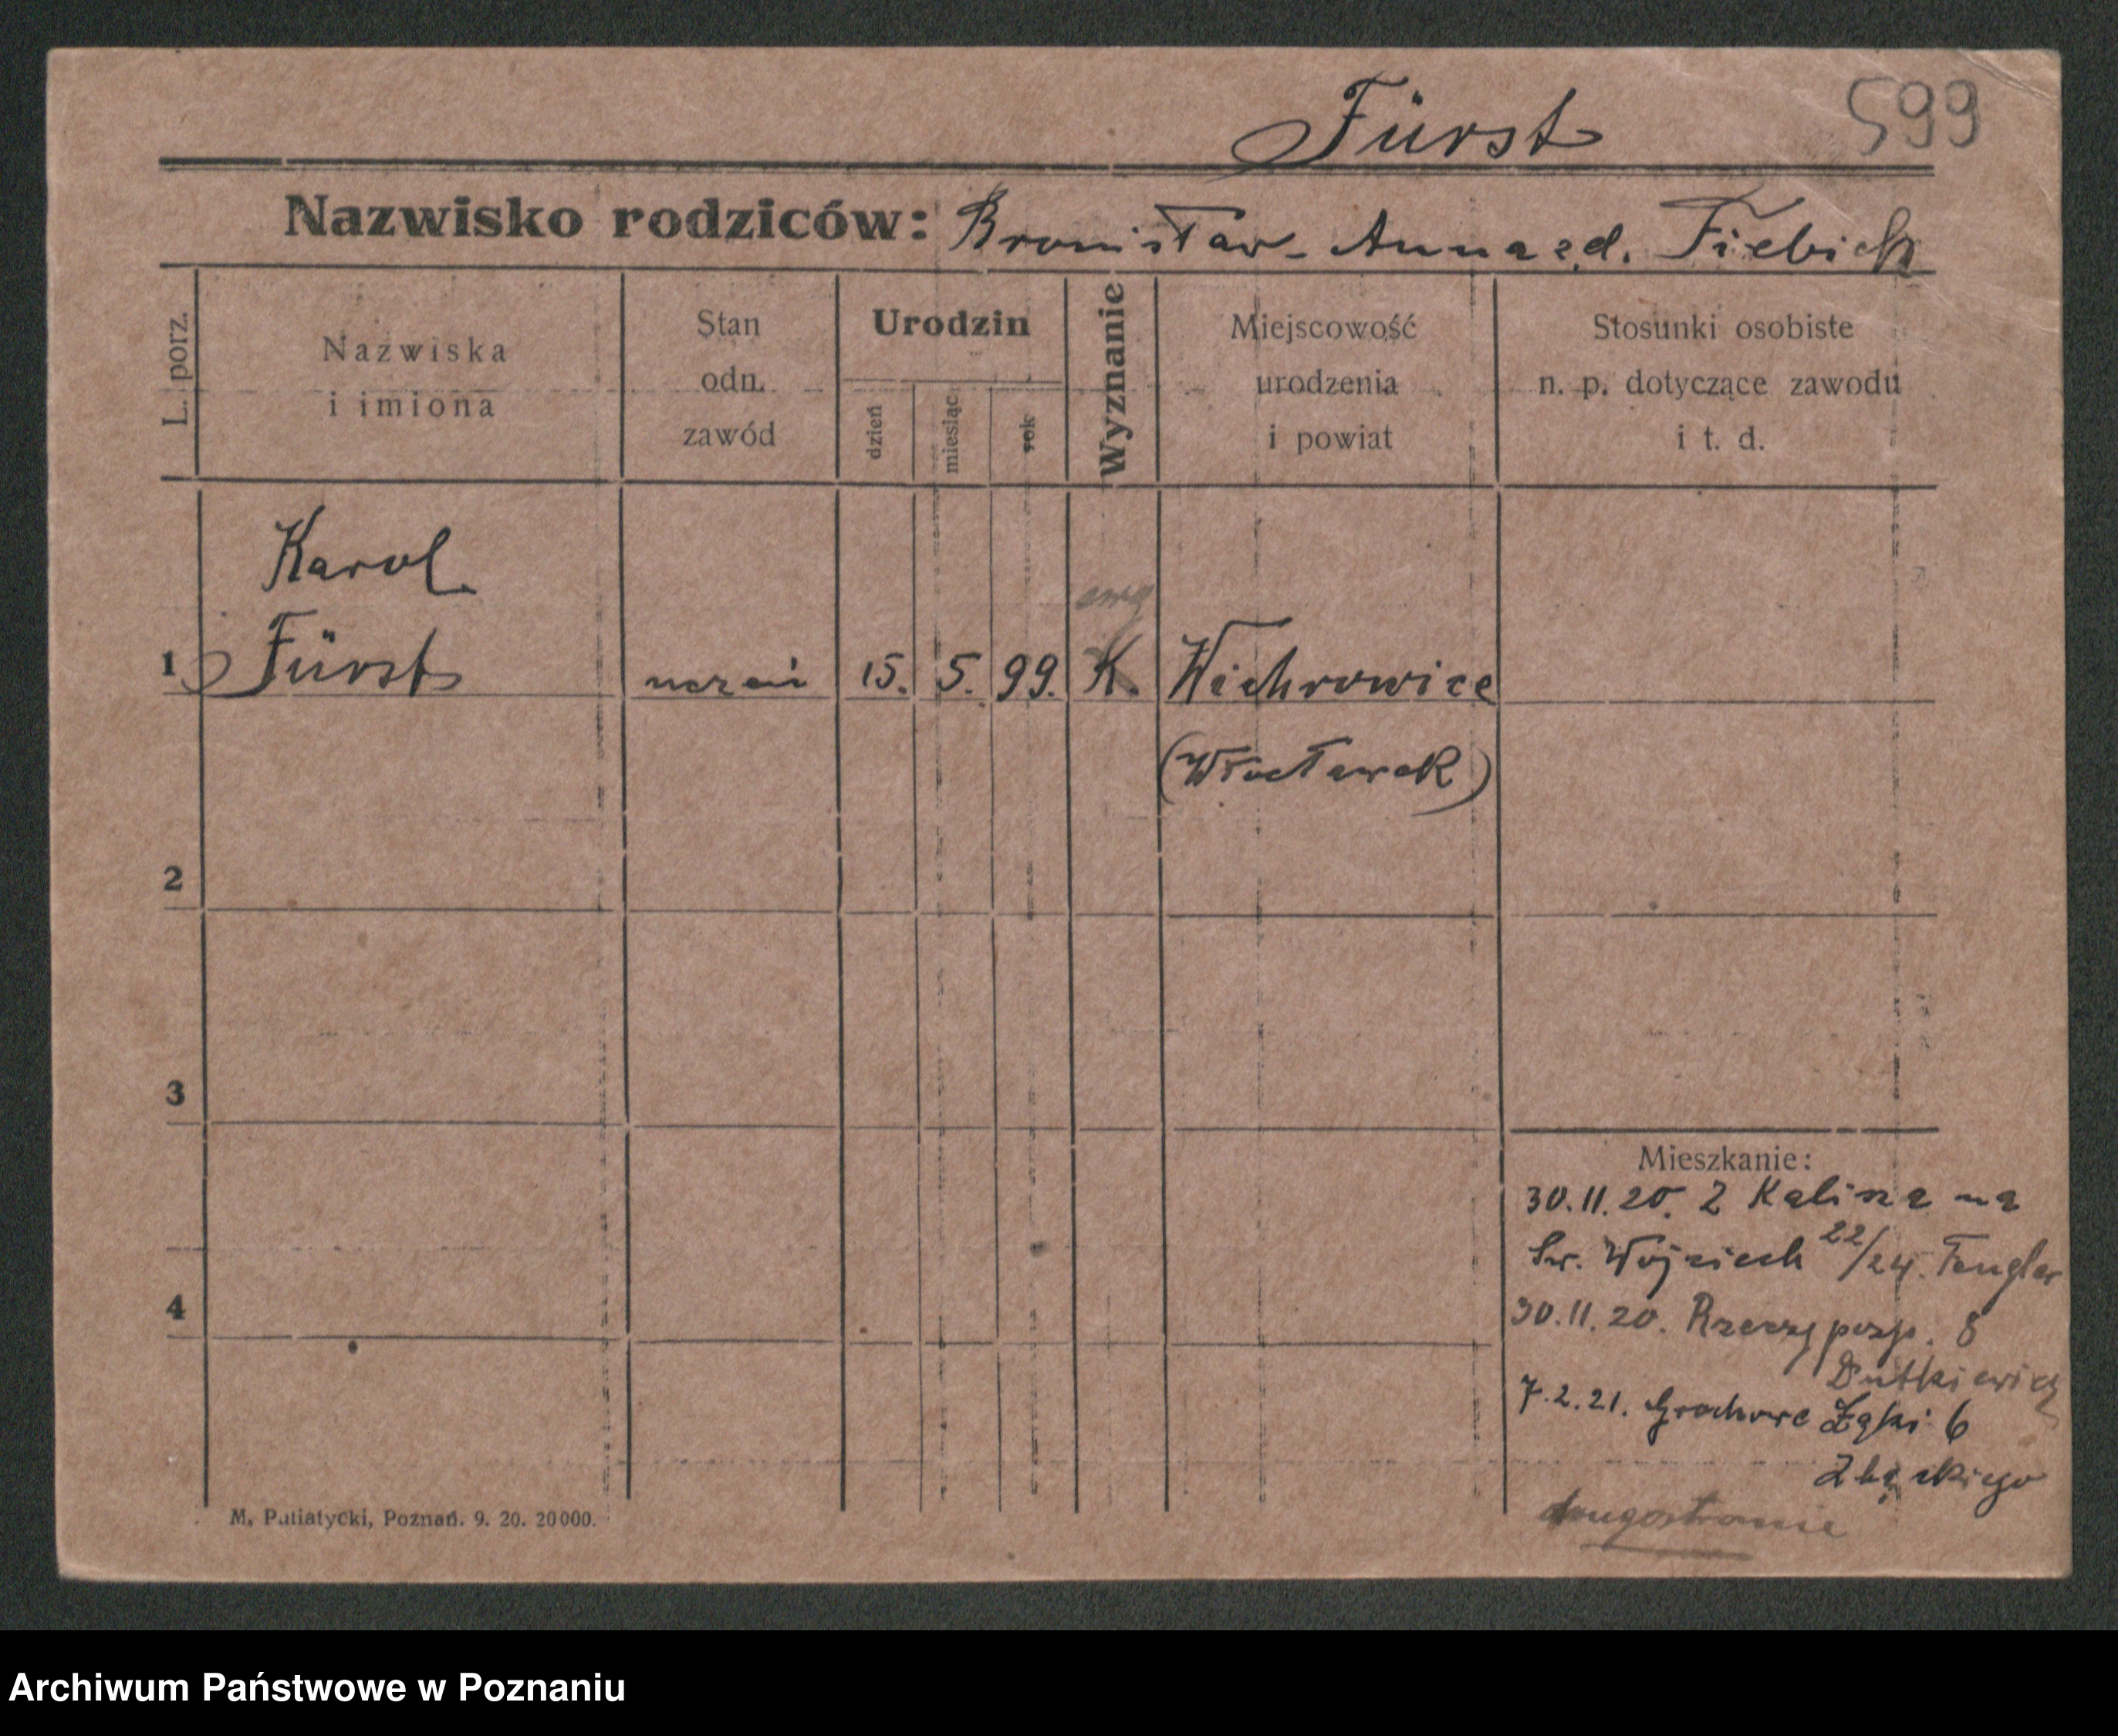 Fürst 599
Nazwisko rodziców: Bronisław - Anna z d. Fiebich
L. porz.
Nazwiska
i imiona
Stan
odn.
zawód
Urodzin
dzień
miesiąc
rok
Wyznanie
Miejscowość
urodzenia
i powiat
Stosunki osobiste
n. p. dotyczące zawodu
i t. d.
Karol
ewg
1 Fürst uczeń 15. 5. 99. K. Wichrowice
(Włocławek)
2
3
4
Mieszkanie:
30.11.20. Z Kalisza na
Św. Wojciech 22/24. Tengler
30.11.20. Rzeczyposp. 8
Dutkiewicz
7.2.21. Grochowe Łąki 6
Zbąskiego
drugostronnie
M. Putiatycki, Poznań. 9. 20. 20000.
Archiwum Państwowe w Poznaniu